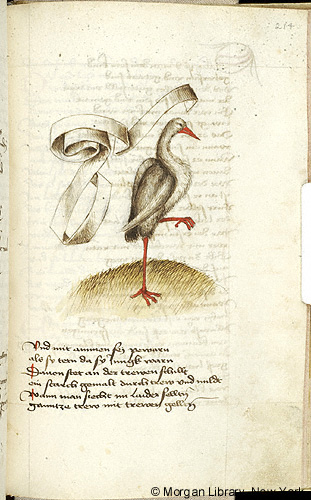 214
Und mit ammen sey bewarn
als sy tetn da sy Jungk warn
Davon stet an der trewen schilt
ein storch gemalt durch trew und milt
Wann man siecht im laider selten
ganntze trew mit trewen gelten
© Morgan Library, New York